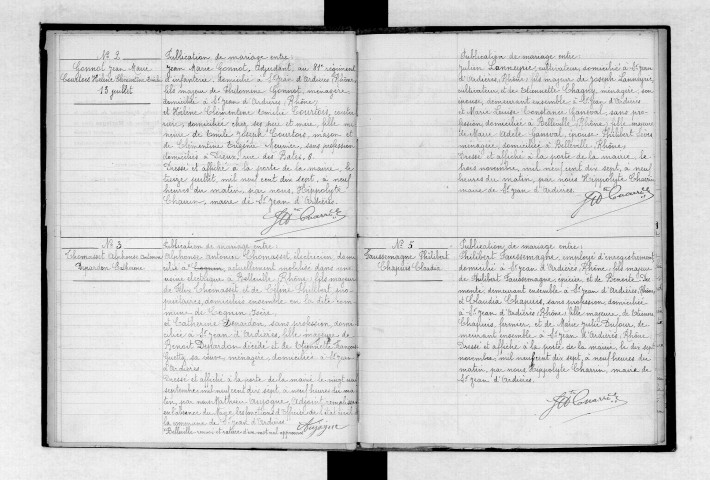 Nº 2
Gonnot Jean Marie
Courtois Hélène Clémentine Emilie
13 juillet
Publication de mariage entre:
Jean Marie Gonnot, Adjudant au 81e régiment
d'infanterie, domicilié à St Jean d'Ardières, Rhône,
fils majeur de Philomène Gonnot, ménagère
domiciliée à St Jean d'Ardières, Rhône,
et Hélène Clémentine Emilie Courtois, coutu-
rière, domiciliée chez ses père et mère, fille mi-
neure de Emile Joseph Courtois, maçon et
de Clémentine Eugénie Meunier, sans profession
domiciliés à Dreux, rue des Bales, 6
Dressé et affiché à la porte de la mairie, le
treize juillet, mil neuf cent dix sept, à neuf
heures du matin, par nous, Hippolyte
Charrin, maire de St Jean d'Ardières.
Nº 3
Thomasset Alphonse Antoine
Depardon Catherine
Publication de mariage entre:
Alphonse Antoine Thomasset électricien, domi-
cilié à Cognin, actuellement mobilisé dans une
usine électrique à Belleville, Rhône, fils majeur
de Félix Thomasset et de Thillet pro-
priétaires, domiciliés ensemble en la dite com-
mune de Cognin Isère,
et Catherine Depardon, sans profession domi-
ciliée à St Jean d'Ardières, fille majeure de
Benoit Depardon décédé et de Françoise
Guotty sa veuve, ménagère, domiciliée à St Jean
d'Ardières.
Dressé et affiché à la porte de la mairie le vingt un
septembre mil neuf cent dix sept, à neuf heures du ma-
tin, par nous Mathieu Aujogue, Adjoint remplissant
en l'absence du Maire, les fonctions d'officier de l'état civil de
la commune de St Jean d'Ardières.
Belleville un mot nul approuvé
Aujogue
Publication de mariage entre:
Julien Lanneyrie, cultivateur, domicilié à St Jean
d'Ardières, Rhône, fils majeur de Joseph Lanneyrie
cultivateur et de Chagny, ménagère, son
épouse, demeurant ensemble à St Jean d'Ardières
et Marie Louise Constance Ganeval, sans pro-
fession, domiciliée à Belleville, Rhône, fille mineure
de Marie Adèle Ganeval, épouse Philibert
ménagère, domiciliée à Belleville, Rhône,
Dressé et affiché à la porte de la mairie, le
trois novembre, mil neuf cent dix sept, à neuf
heures du matin, par nous Hippolyte Charrin
maire de St Jean d'Ardières.
Nº 5
Faussemagne Philibert
Chapuis Claudia
Publication de mariage entre:
Philibert Faussemagne employé d'enregistrement
domicilié à St Jean d'Ardières, Rhône, fils majeur
de Philibert Faussemagne, épicier et de Benoite
demeurant ensemble à St Jean d'Ardières, Rhône
et Claudia Chapuis, sans profession, domiciliée
à St Jean d'Ardières, Rhône, fille majeure, de Etienne
Chapuis, fermier, et de Marie Julie Dufour, de-
meurant ensemble, à St Jean d'Ardières, Rhône,
Dressé et affiché à la porte de la mairie, le dix sept
novembre, mil neuf cent dix sept, à neuf heures du
matin, par nous Hippolyte Charrin, maire de
St Jean d'Ardières.